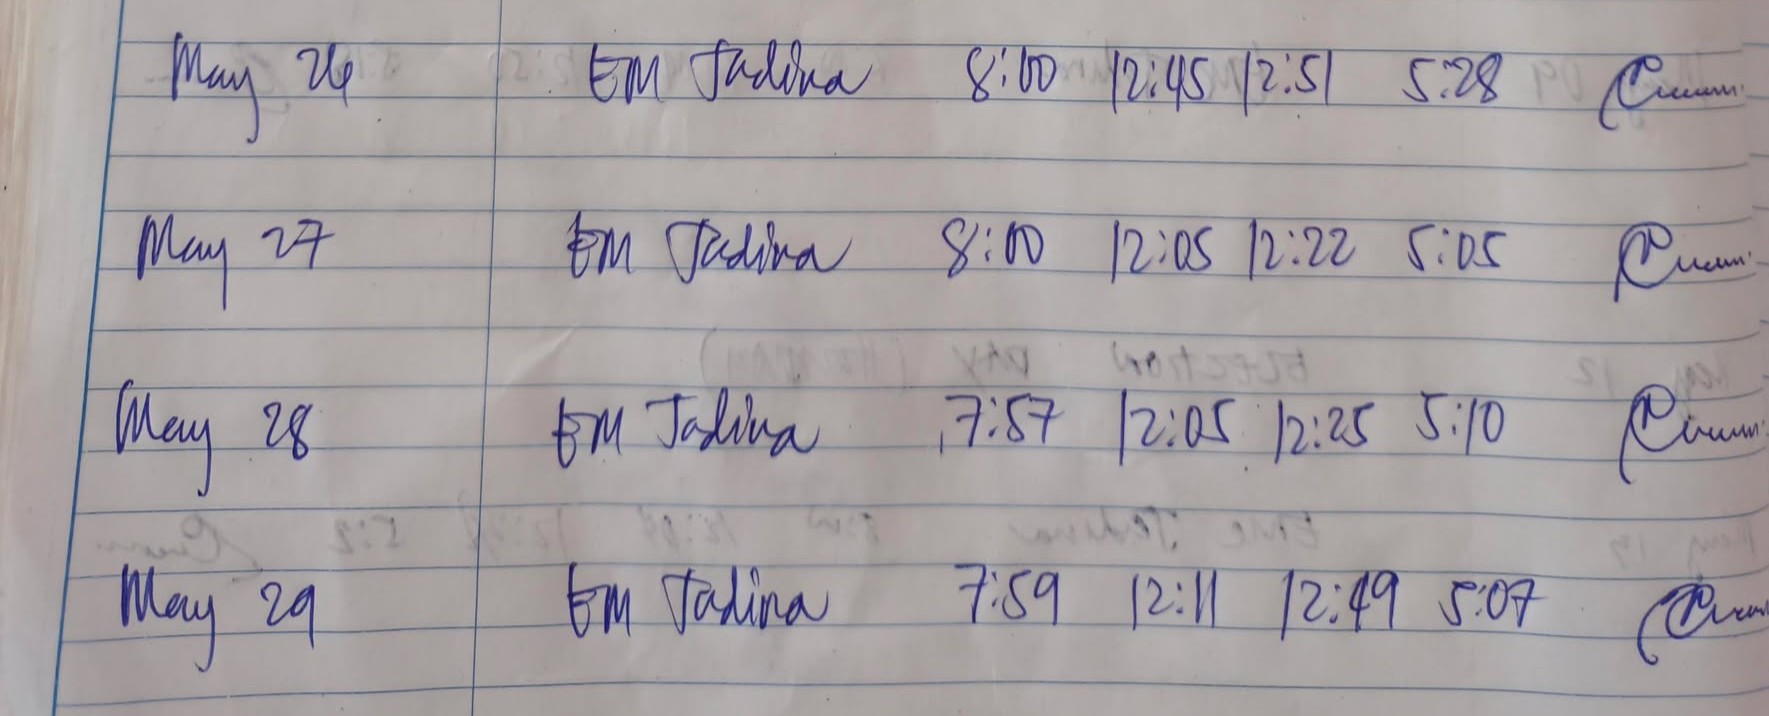 May 26 EM Jadina 8:00 12:45 12:51 5:28
May 27 EM Jadina 8:00 12:05 12:22 5:05
May 28 EM Jadina 7:57 12:05 12:25 5:10
May 29 EM Jadina 7:59 12:11 12:49 5:07